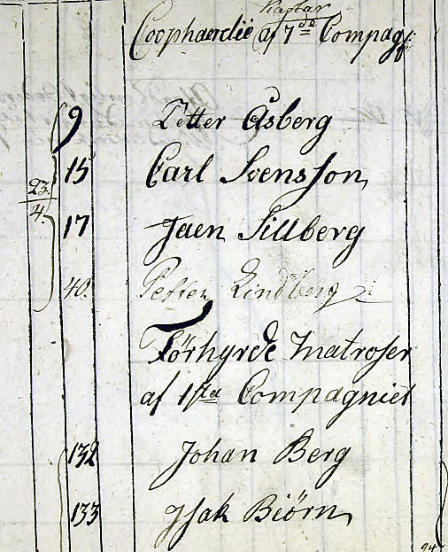 Coophaerdie af 7de Compag:
9 Petter Åsberg
15 Carl Svensson
17 Jaen Sillberg
23
4.
40. Petter Lindberg
Förhyrde Matroser
af 1sta Compagniet
132 Johan Berg
133 Isak Biörn